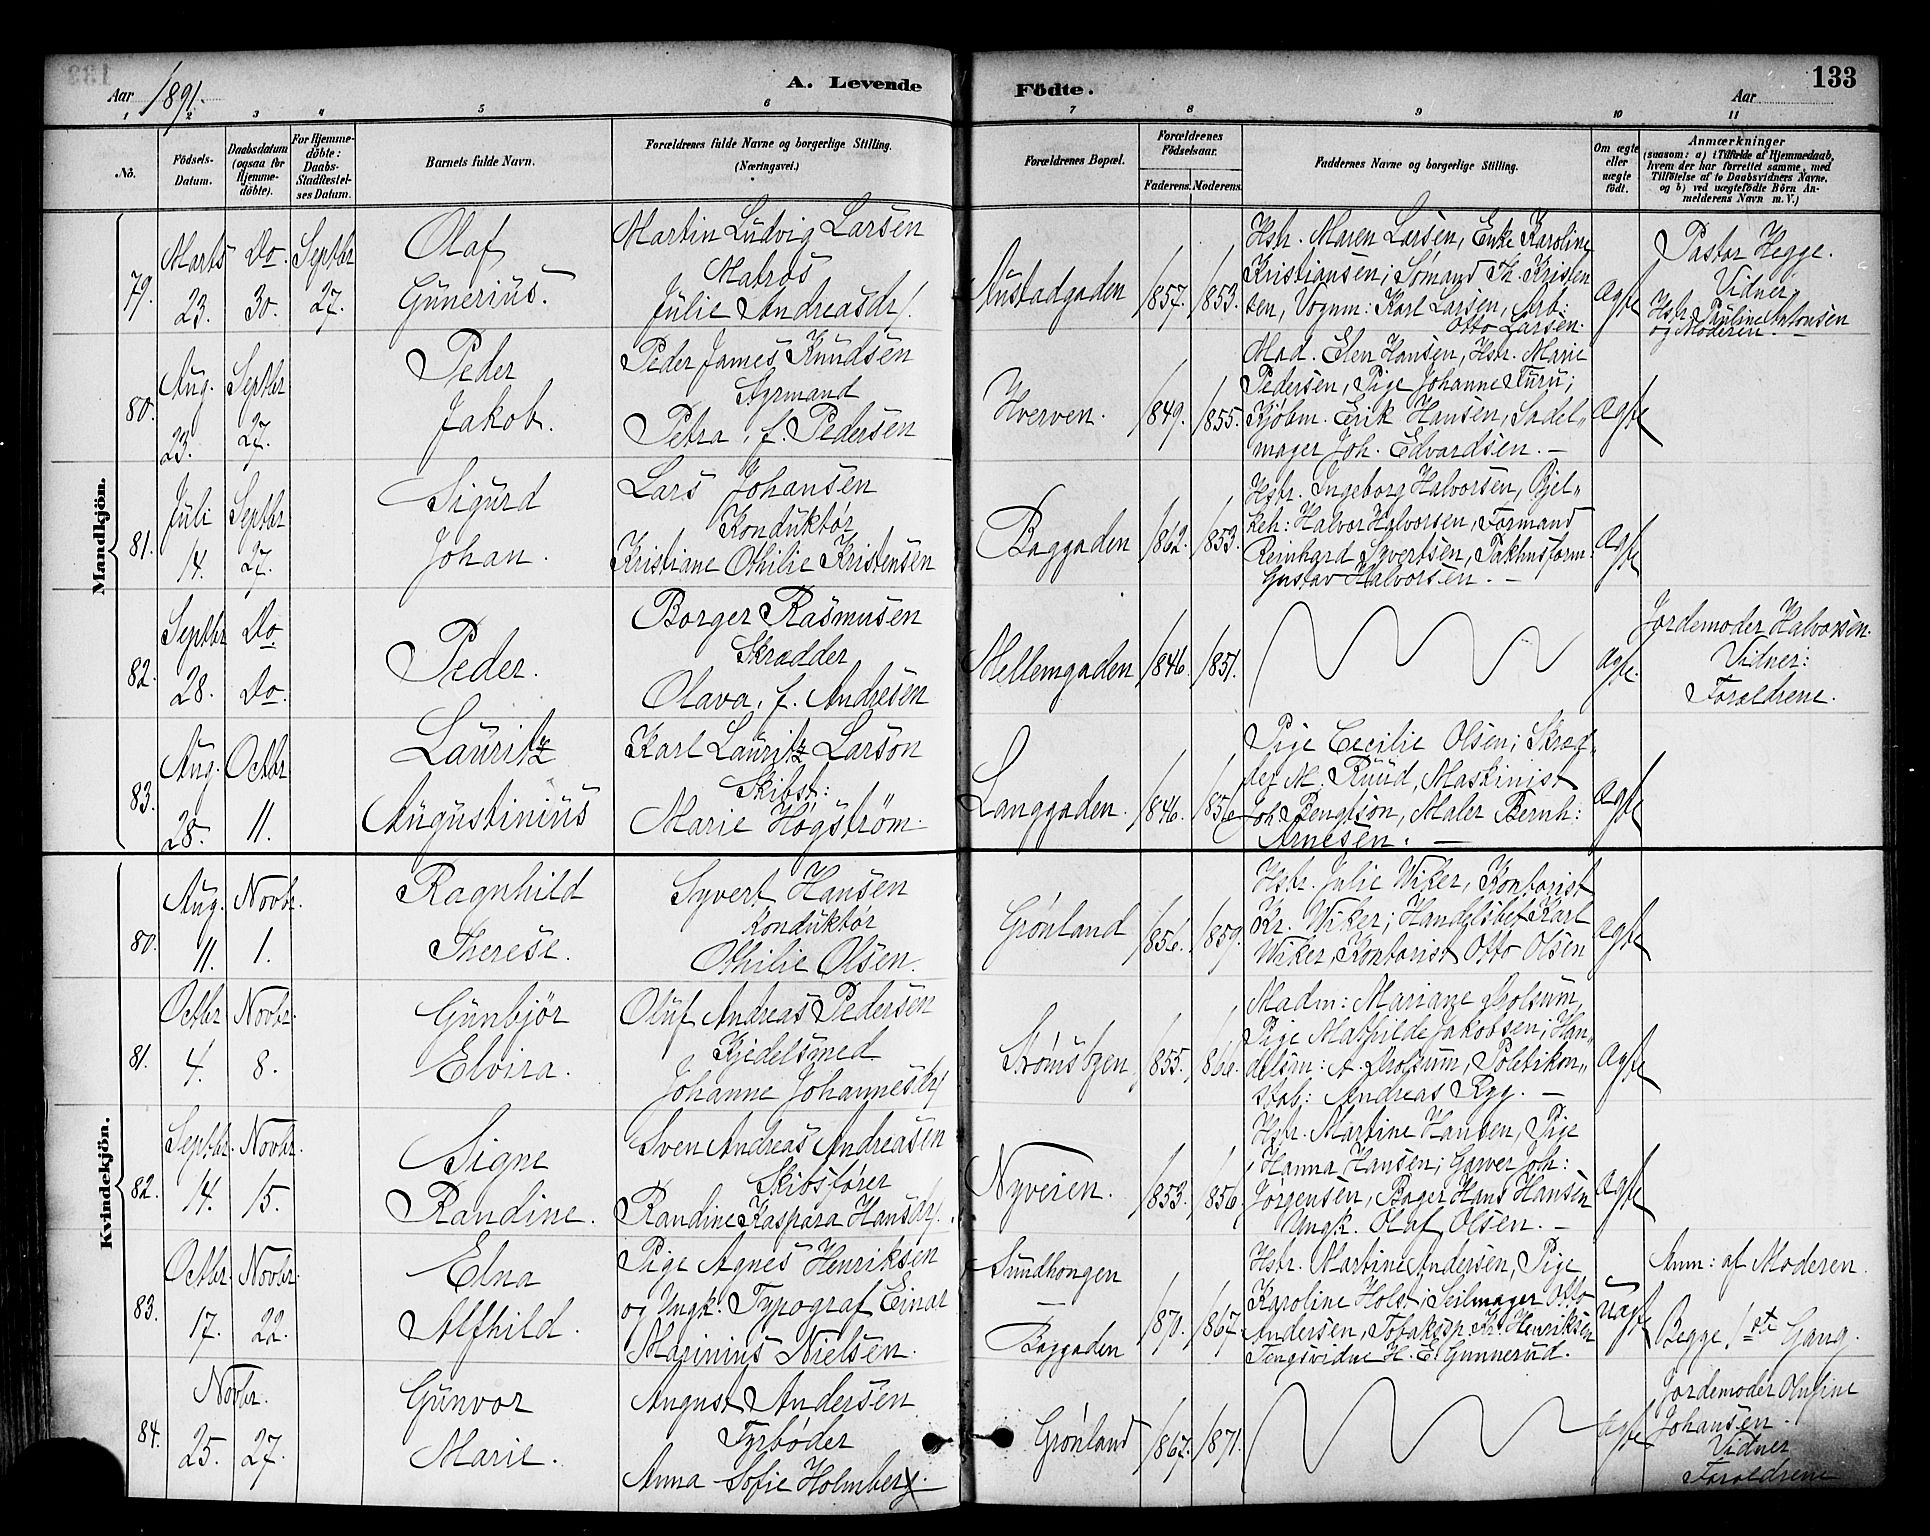 133
Aar 1891.
A. Levende Födte.
Aar
1 2 3 4 5 6 7 8 9 10 11
No.
Födsels-Datum.
Daabsdatum (ogsaa for Hjemme-döbte).
For Hjemme-döbte: Daabs-Stadfestel-ses Datum.
Barnets fulde Navn.
Forældrenes fulde Navne og borgerlige Stilling. (Næringsvei.)
Forældrenes Bopæl.
Forældrenes Födselsaar.
Faderens. Moderens.
Faddernes Navne og borgerlige Stilling.
Om ægte eller uægte födt.
Anmærkninger
(saasom: a) i Tilfælde af Hjemmedaab, hvem der har forrettet samme, med Tilföielse af to Daabsvidners Navne, og b) ved uægtefödte Börn An-melderens Navn m. V.)
Mandkjön.
79.
Marts 23.
Do. 30.
Septbr 27.
Olaf
Gunerius.
Martin Ludvig Larsen
Matros
Julie Andreasdr.
Austadgaden
1857. 1853.
Hstr. Maren Larsen, Enke Karoline
Kristiansen; Sømand Th. Kristen
sen, Vognm: Karl Larsen, Arb:
Otto Larsen.
ægte
Pastor Hegge.
Vidner,
Hstr. Pauline Antonsen
og Moderen —
80.
Aug. 23.
Septbr 27.
Peder
Jakob.
Peder James Knudsen
Styrmand
Petra, f. Pedersen
Hverven.
1849. 1855.
Mad. Elen Hansen, Hstr. Marie
Pedersen, Pige Johanne Furu;
Kjøbm. Erik Hansen, Sadel„
mager Joh. Edvardsen. —
ægte
81.
Juli 14.
Septbr 27.
Sigurd
Johan.
Lars Johansen
Konduktør
Kristiane Othilie Kristensen
Baggaden
1862. 1853.
Hstr. Ingeborg Halvorsen, Bjel„
keh: Halvor Halvorsen, Formand
Reinhard Syvertsen, Pakhusform
Gustav Halvorsen. —
ægte
82.
Septbr 28.
Do Do.
Peder.
Borger Rasmusen
Skrædder
Olava, f. Andresen
Mellemgaden
1846. 1851.
ægte.
Jordemoder Halvorsen.
Vidner:
Forældrene.
83.
Aug. 28.
Octbr 11.
Lauritz
Augustinius
Karl Lauritz Larson
Skibst:
Marie Högström.
Langgaden.
1846. 1856
Pige Cecilie Olsen; Skræd„
der M. Ruud, Maskinist
Joh Bengtson, Maler Bernh:
Arnesen. —
ægte
Kvindekjön.
80.
Aug. 11.
Novbr. 1.
Ragnhild
Therese.
Syvert Hansen
Konduktør
Othilie Olsen.
Grønland
1856. 1859.
Hstr. Julie Wiker, Kontorist
Kr. Wiker; Handelsbet Karl
Wiker, Kontorist Otto Olsen
ægte
81.
Octbr 4.
Novbr. 8.
Gunbjör
Elvira.
Oluf Andreas Pedersen
Kjedelsmed
Johanne Johannesdr
1855. 1866.
Pige Mathilde Jakobsen; Han„
Andreas Ryg. —
ægte
82.
Septbr. 14.
Novbr. 15.
Signe
Randine.
Sven Andreas Andreasen
Skibsfører
Randine Kaspara Hansdr.
Nyveien.
1853. 1856.
Hstr. Martine Hansen, Pige
Hanna Hansen; Garver Joh:
Jørgensen, Bager Hans Hansen
Ungk. Olaf Olsen. —
ægte
83.
Octbr. 17.
Novbr. 22.
Elna
Alfhild.
Pige Agnes Henriksen
og Ungk. Typograf Einar
Marinius Nielsen.
Sundhongen
—
Baggaden
1870. 1867
Hstr. Martine Andersen, Pige
Karoline Holst; Seilmager Otto
Andersen, Tobakssp. Kr. Henriksen
H. E. Gunnerud.
uægte
Anm: af Moderen.
Begge 1ste Gang.
84.
Novbr.
25. 27.
Gunvor
Marie.
August Andersen
Fyrbøder
Anna Sofie Holmberg.
Grønland
1867. 1871.
ægte
Jordemoder Olufine
Johansen.
Vidner
Forældrene